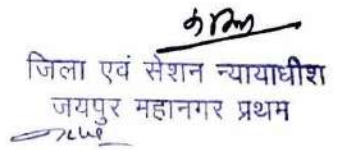 जिला एवं सेशन न्यायाधीश
जयपुर महानगर प्रथम